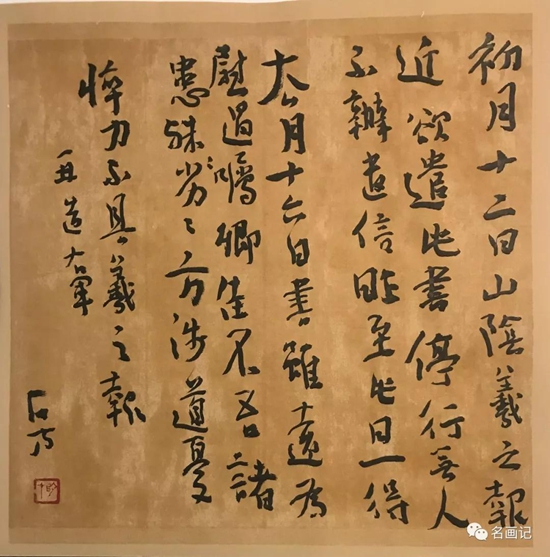 初月十二日山陰羲之報
近欲遣此書停行無人
不辦遣信昨至此旦一得
去月十六日書雖遠為
慰過囑卿佳不吾諸
患殊劣劣方涉道憂
悴力不具羲之報
丑造右軍
石
名画记